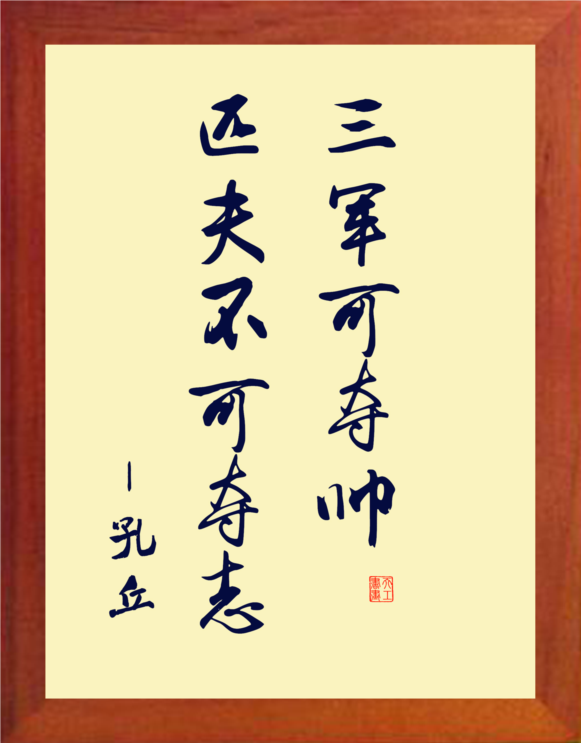 三军可夺帅
匹夫不可夺志
—孔丘